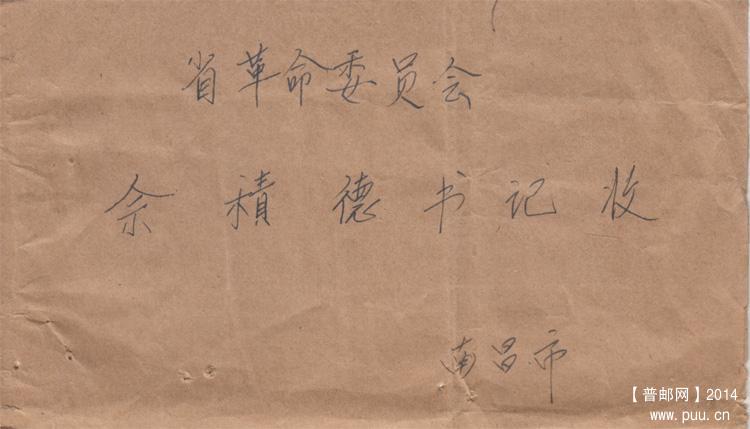 省革命委员会
佘積德书记收
南昌市
【普邮网】2014
www.puu.cn